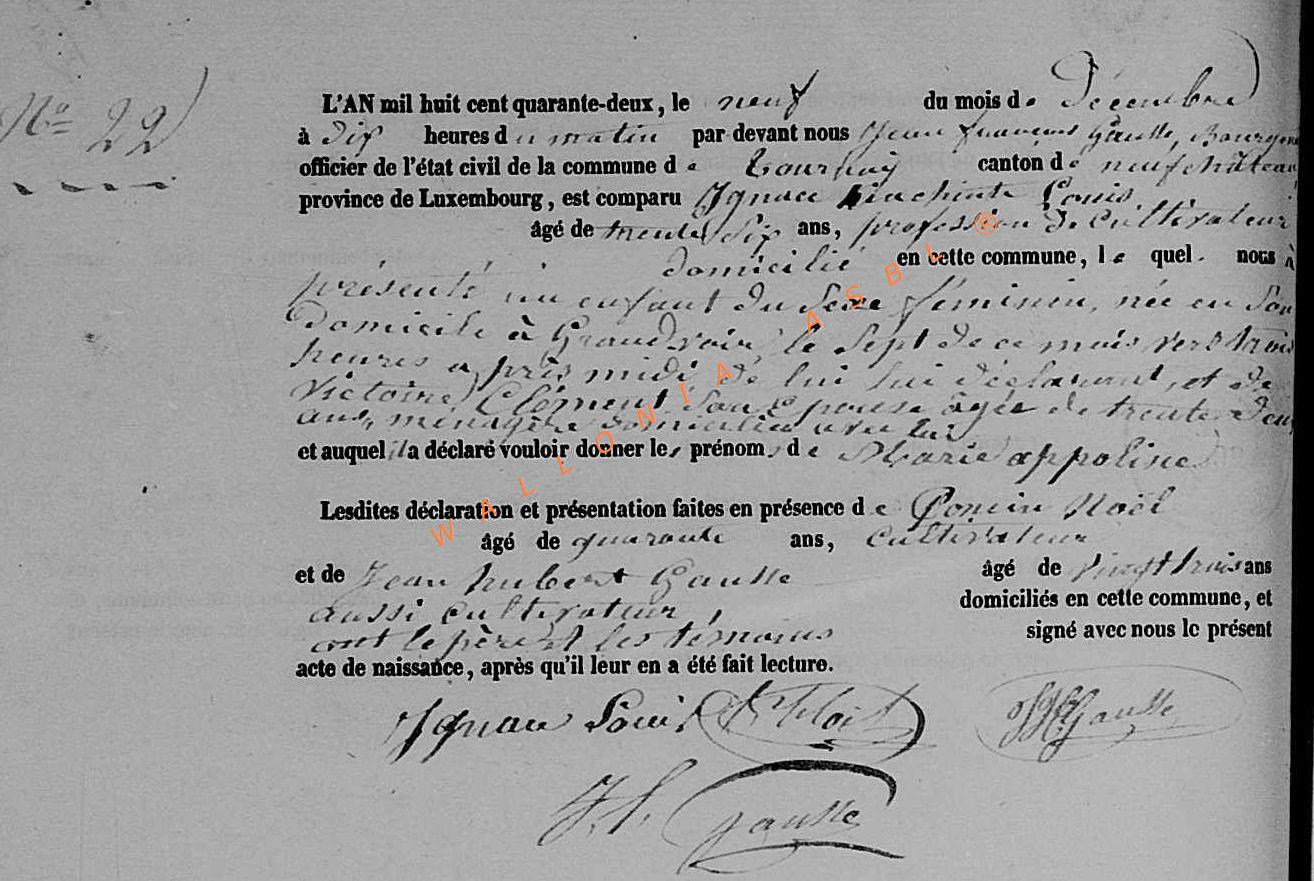 N° 22
L'AN mil huit cent quarante-deux, le neuf du mois de Décembre
à dix heures du matin par devant nous Jean François Gausse, Bourgm
officier de l'état civil de la commune de Tournay canton de neufchâteau
province de Luxembourg, est comparu Ignace hiachinte Louis
âgé de trente six ans, profession de cultivateur
domicilié en cette commune, le quel nous à
présenté un enfant du sexe féminin, née en son
domicile à Grandvoir, le sept de ce mois vers trois
heures après midi, de lui lui déclarant, et de
Victoire Clément son épouse âgée de trente deux
ans, ménagère domiciliée avec lui
et auquel il a déclaré vouloir donner les prénoms de Marie appoline
Lesdites déclaration et présentation faites en présence de Poncin Noël
âgé de quarante ans, cultivateur
et de Jean hubert Gausse âgé de vingt trois ans
aussi cultivateur, domiciliés en cette commune, et
ont le père et les témoins signé avec nous le présent
acte de naissance, après qu'il leur en a été fait lecture.
Ignace Louis
Gausse
J. f. Gausse
WALLONIA ASBL ®